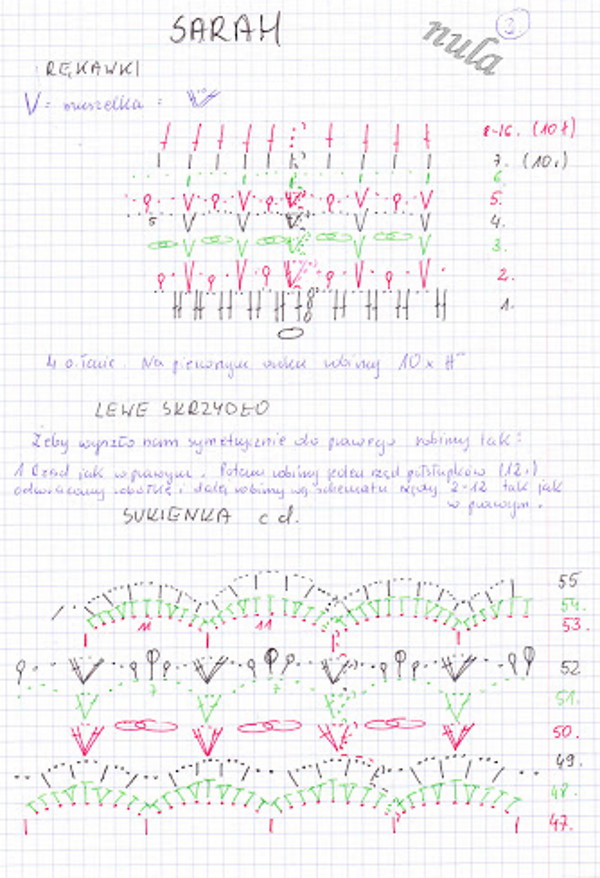 SARAH
nula
3.
RĘKAWKI
V = muszelka =
8-16. (10
7. (10
6.
5.
5 4.
3.
2.
1.
4 o. łańc. Na pierwszym rzędu robimy 10 x
LEWE SKRZYDŁO
Żeby wyszło nam symetrycznie do prawego robimy tak:
1 Rząd jak w prawym. Potem robimy jeden rząd półsłupków (12.)
odwracamy robótkę i dalej robimy wg schematu rzędy 2-12 tak jak
w prawym.
SUKIENKA c d.
55
54.
11 11 53.
52
7 7 51.
50.
49.
48.
47.